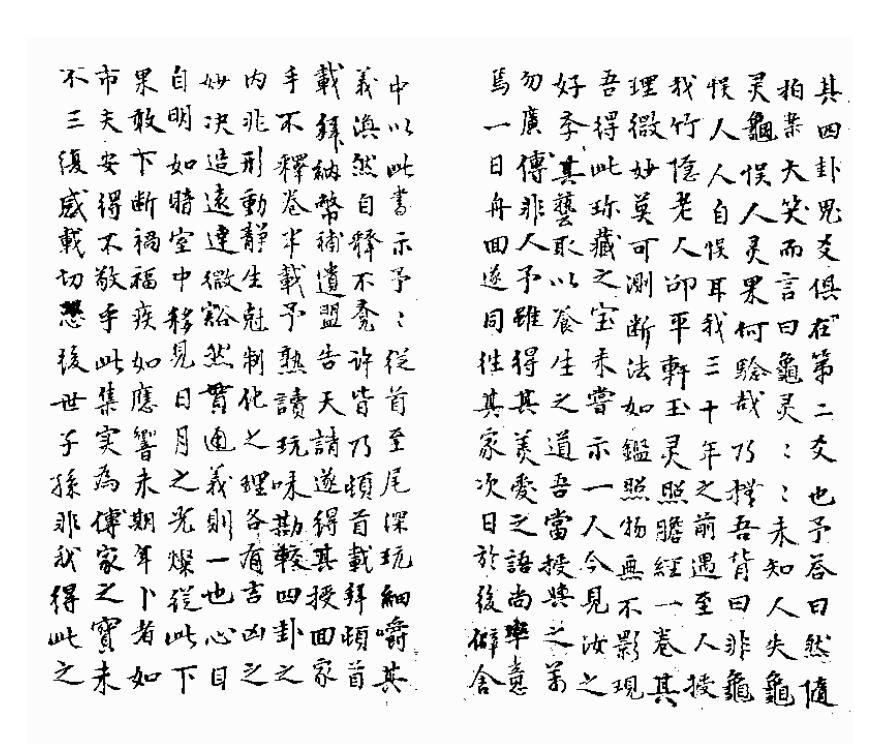 其四卦鬼爻俱在第二爻也予答曰然隨
拍案大笑而言曰龜灵〻〻未知人失龜
灵龜悮人灵果何驗哉乃撲吾背曰非龜
悮人人自悮耳我三十年之前遇至人授
我竹隐老人卭平軒玉灵照膽經一卷其
理微妙莫可測断法如鑑照物無不影現
吾得此珎藏之宝未嘗示一人今見汝之
好李其藝取以養生之道吾當授與之萬
勿廣傳非人予雖得其美愛之語尚率意
焉一日舟回遂同徃其家次日於後僻舍
中以此書示予〻從首至尾深玩細嚼其
義渙然自釋不覺許皆乃頓首載拜頓首
載拜納幣補遺盟告天請遂得其授回家
手不釋卷半載予熟讀玩味勘較四卦之
内非形動靜生尅制化之理各有吉凶之
妙决造遠達微豁然貫通義則一也心目
自明如暗室中移見日月之光燦從此下
果敢下断禍福疾如應響未期年卜者如
市夫安得不敬乎此集实為傳家之寶未
不三復感載切懇後世子孫非我得此之